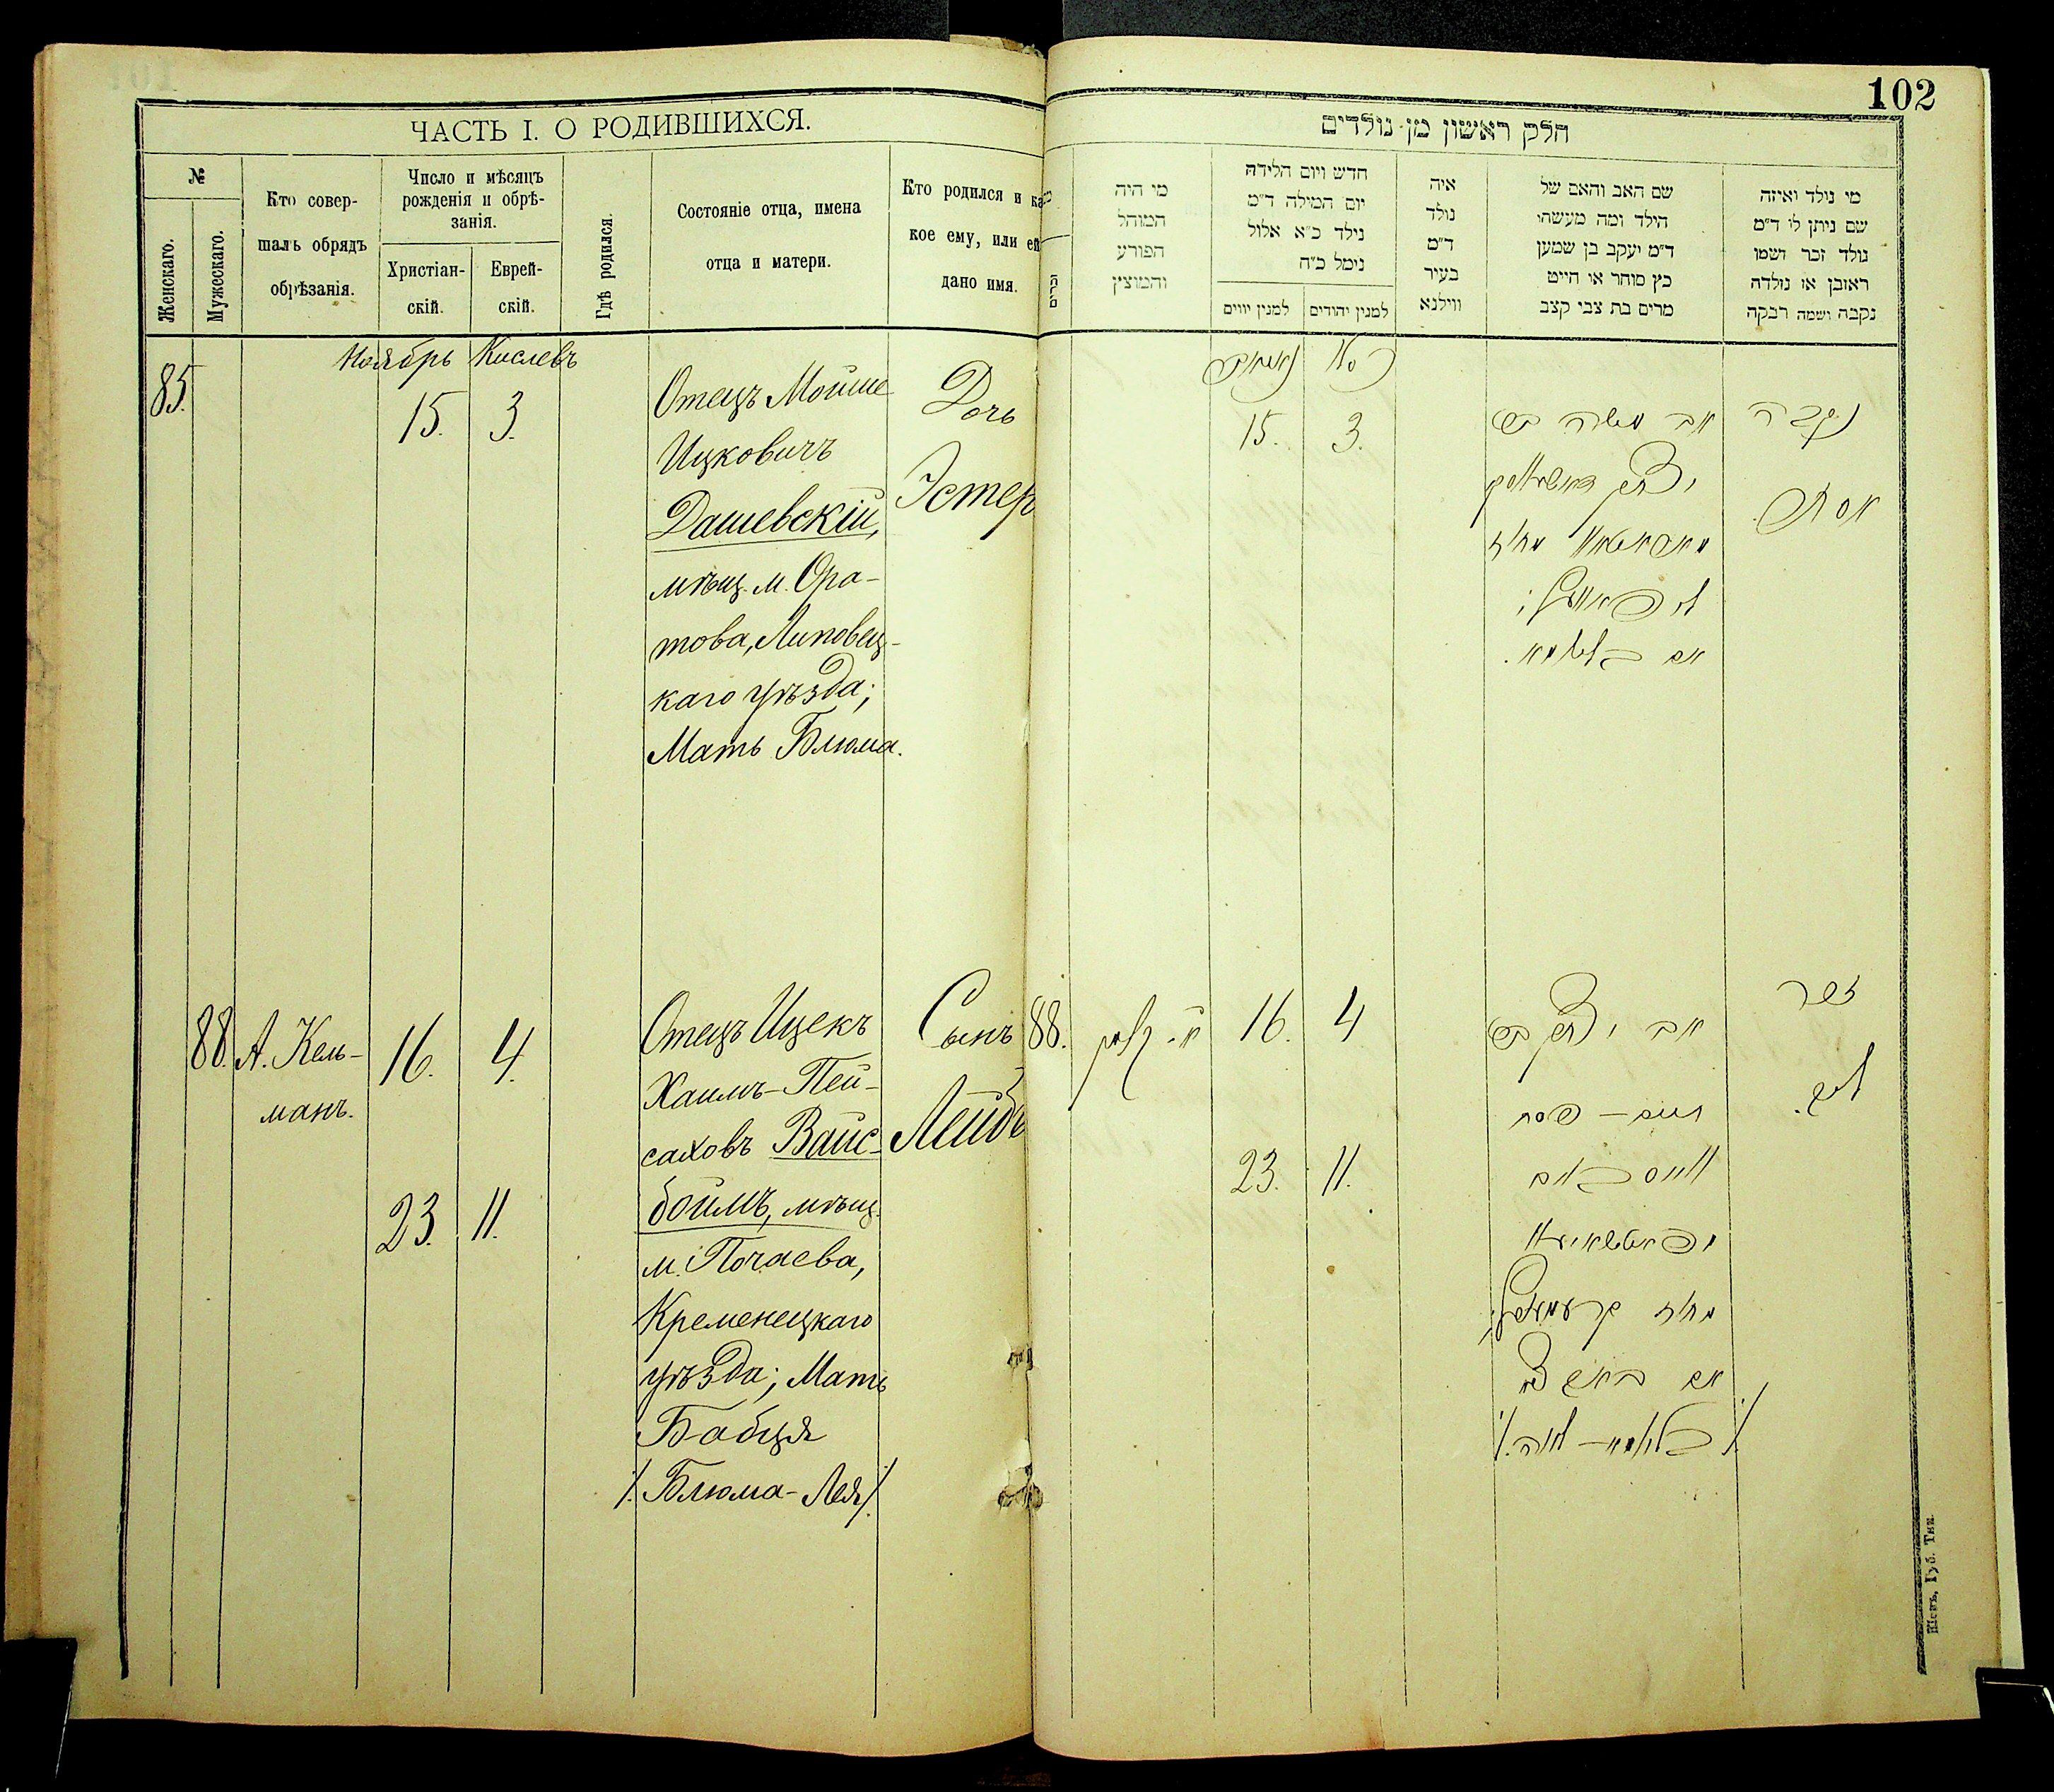 102
ЧАСТЬ I. О РОДИВШИХСЯ.
№
Женскаго.
Мужескаго.
Кто совер-
шалъ обрядъ
обрѣзанія.
Число и мѣсяцъ
рожденія и обрѣ-
занія.
Христіан-
скій.
Еврей-
скій.
Гдѣ родился.
Состояніе отца, имена
отца и матери.
Кто родился и ка
кое ему, или ей
дано имя.
Ноябрь Кислевъ
85.
15. 3.
Отецъ Мойше
Ицковичъ
Дашевскій,
мѣщ. м. Ора-
това, Липовец-
каго уѣзда;
Мать Блюма.
Дочь
Эстер
88. А. Кель-
манъ.
16. 4.
23. 11.
Отецъ Ицекъ
Хаимъ-Пей-
саховъ Вайс-
боймъ, мѣщ.
м. Почаева,
Кременецкаго
уѣзда; Мать
Бабця
/. Блюма-Лея /.
Сынъ
Лейбъ
חלק ראשון מן נולדים
מי היה
המוהל
הפורע
והמוצץ
חדש ויום הלידה
יום המילה ד״מ
נילד כ״א אלול
נימל כ״ח
למנין יווים
למנין יהודים
איה
נולד
ד״מ
בעיר
ווילנא
שם האב והאם של
הילד ומה מעשהו
ד״מ יעקב בן שמען
כץ סוחר או חייט
מרים בת צבי קצב
מי נולד ואיזה
שם ניתן לו ד״מ
נולד זכר ושמו
ראובן או נולדה
נקבה ושמה רבקה
15. 3.
נקבה
אב משה בן
יצחק דאשעווסקי
אסתר.
אם בלומא.
88.
16. 4
23. 11.
זכר
ליב.
אב יצחק בן
חיים – פסח
ווייסבוים
מפאטשאיעוו
/. בלומא – לאה /.
Кіевъ, Губ. Тип.